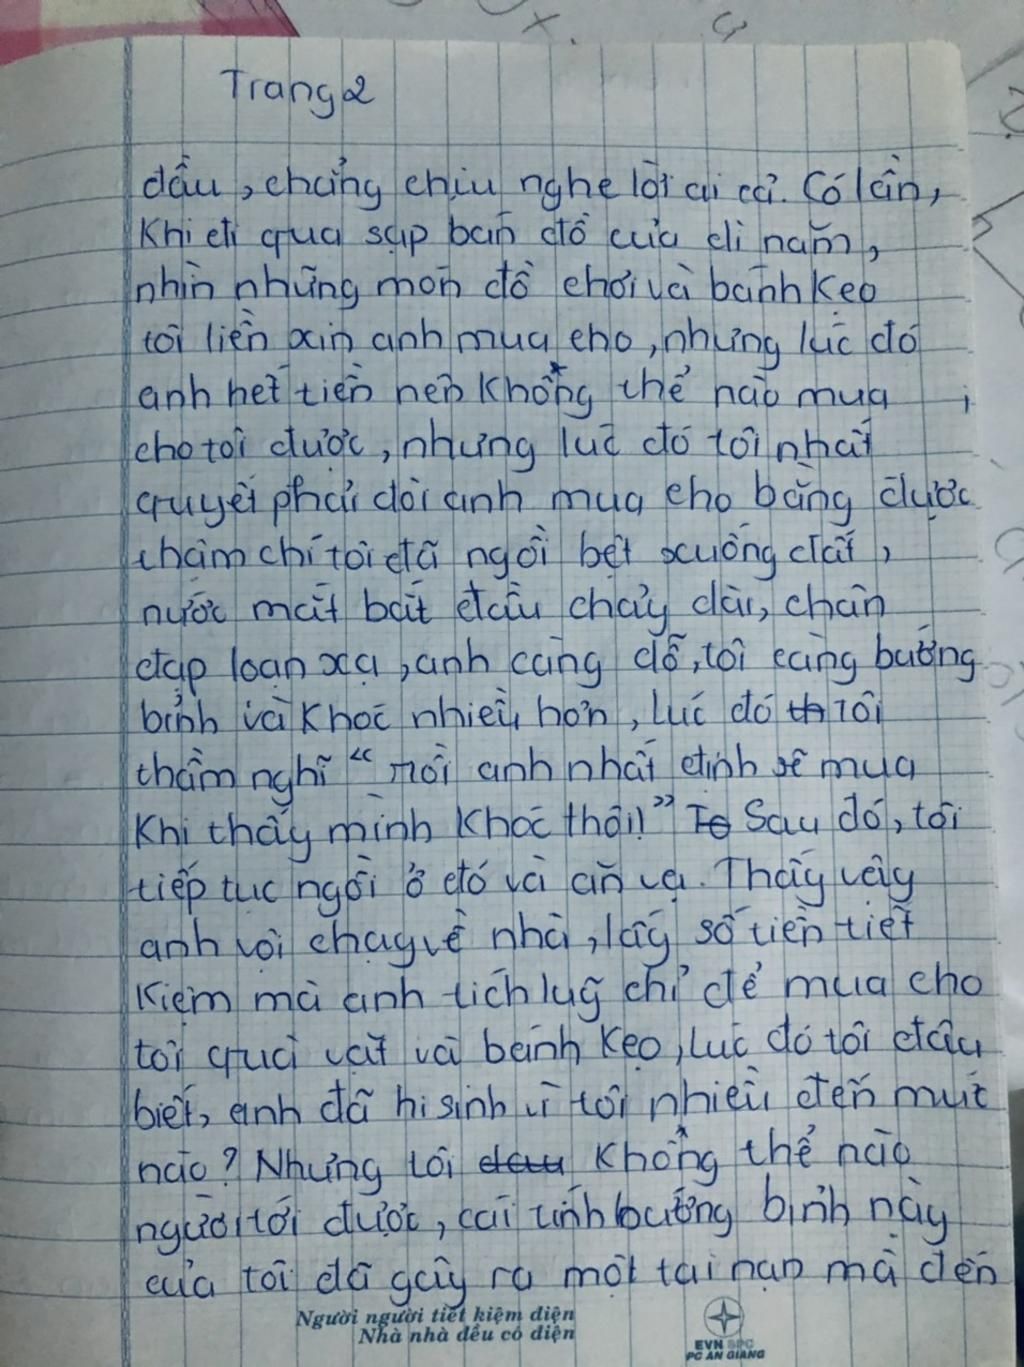 Trang 2
dầu, chẳng chịu nghe lời ai cả. Có lần,
Khi đi qua sạp bán đồ của dì năm,
nhìn những món đồ chơi và bánh Kẹo
tôi liền xin anh mua cho, nhưng lúc đó
anh hết tiền nên Không thể nào mua
cho tôi được, nhưng lúc đó tôi nhất
quyết phải đòi anh mua cho bằng được
thậm chí tôi đã ngồi bệt xuống đất,
nước mắt bắt đầu chảy dài, chân
đạp loạn xạ, anh càng dỗ, tôi càng bướng
bỉnh và Khóc nhiều hơn, Lúc đó th tôi
thầm nghĩ “ rồi anh nhất định sẽ mua
Khi thấy mình Khóc thôi!” To Sau đó, tôi
tiếp tục ngồi ở đó và ăn vạ. Thấy vậy
anh vội chạy về nhà, lấy số tiền tiết
Kiệm mà anh tích luỹ chỉ để mua cho
tôi quà vặt và bánh Kẹo, Lúc đó tôi đâu
biết, anh đã hi sinh vì tôi nhiều đến mức
nào? Nhưng tôi đâu Không thể nào
ngườ tới được, cái tính bướng bỉnh này
của tôi đã gây ra một tai nạn mà đến
Người người tiết kiệm điện
Nhà nhà đều có điện
EVN SPC
PC AN GIANG